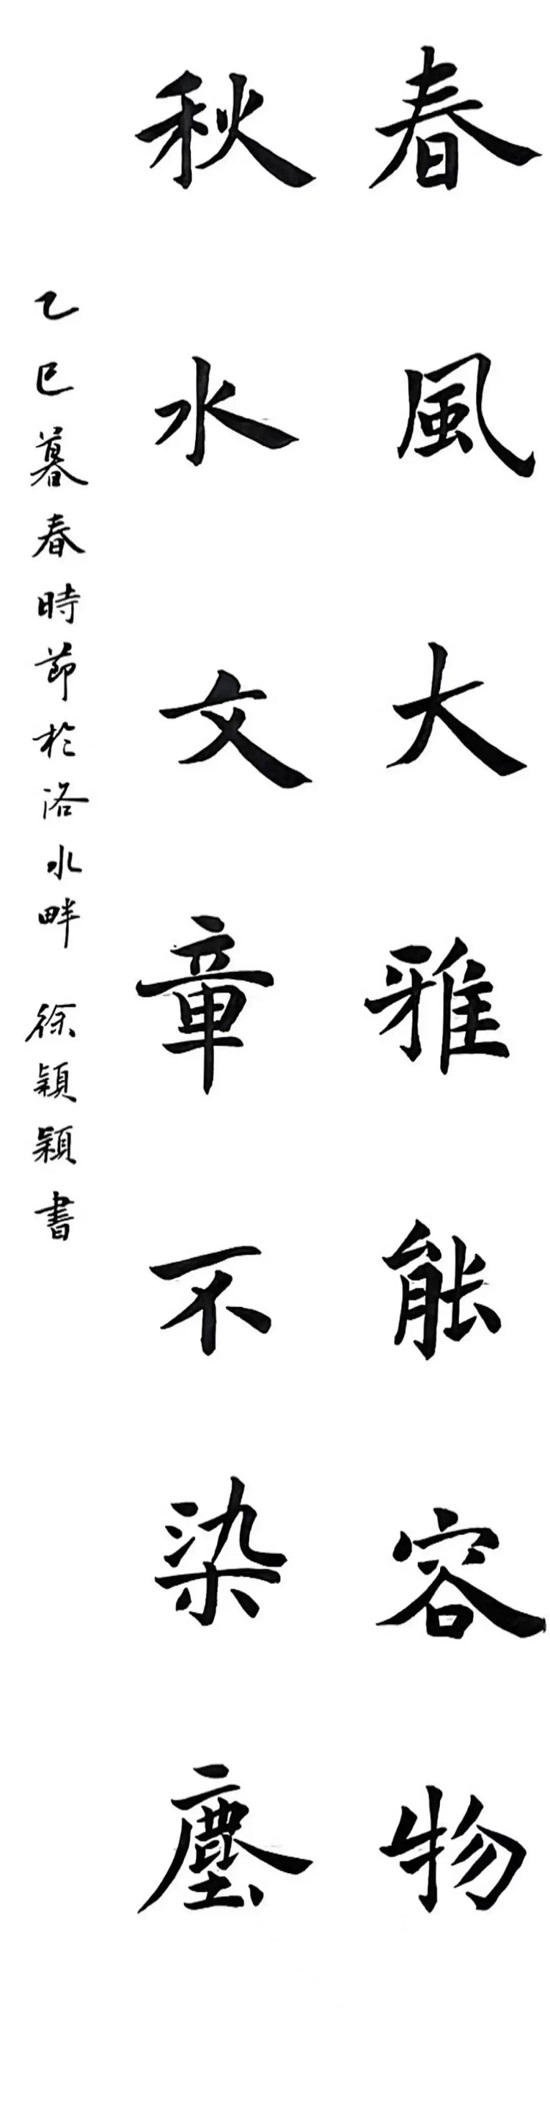 春風大雅能容物
秋水文章不染塵
乙巳暮春時節於洛水畔 徐穎穎書